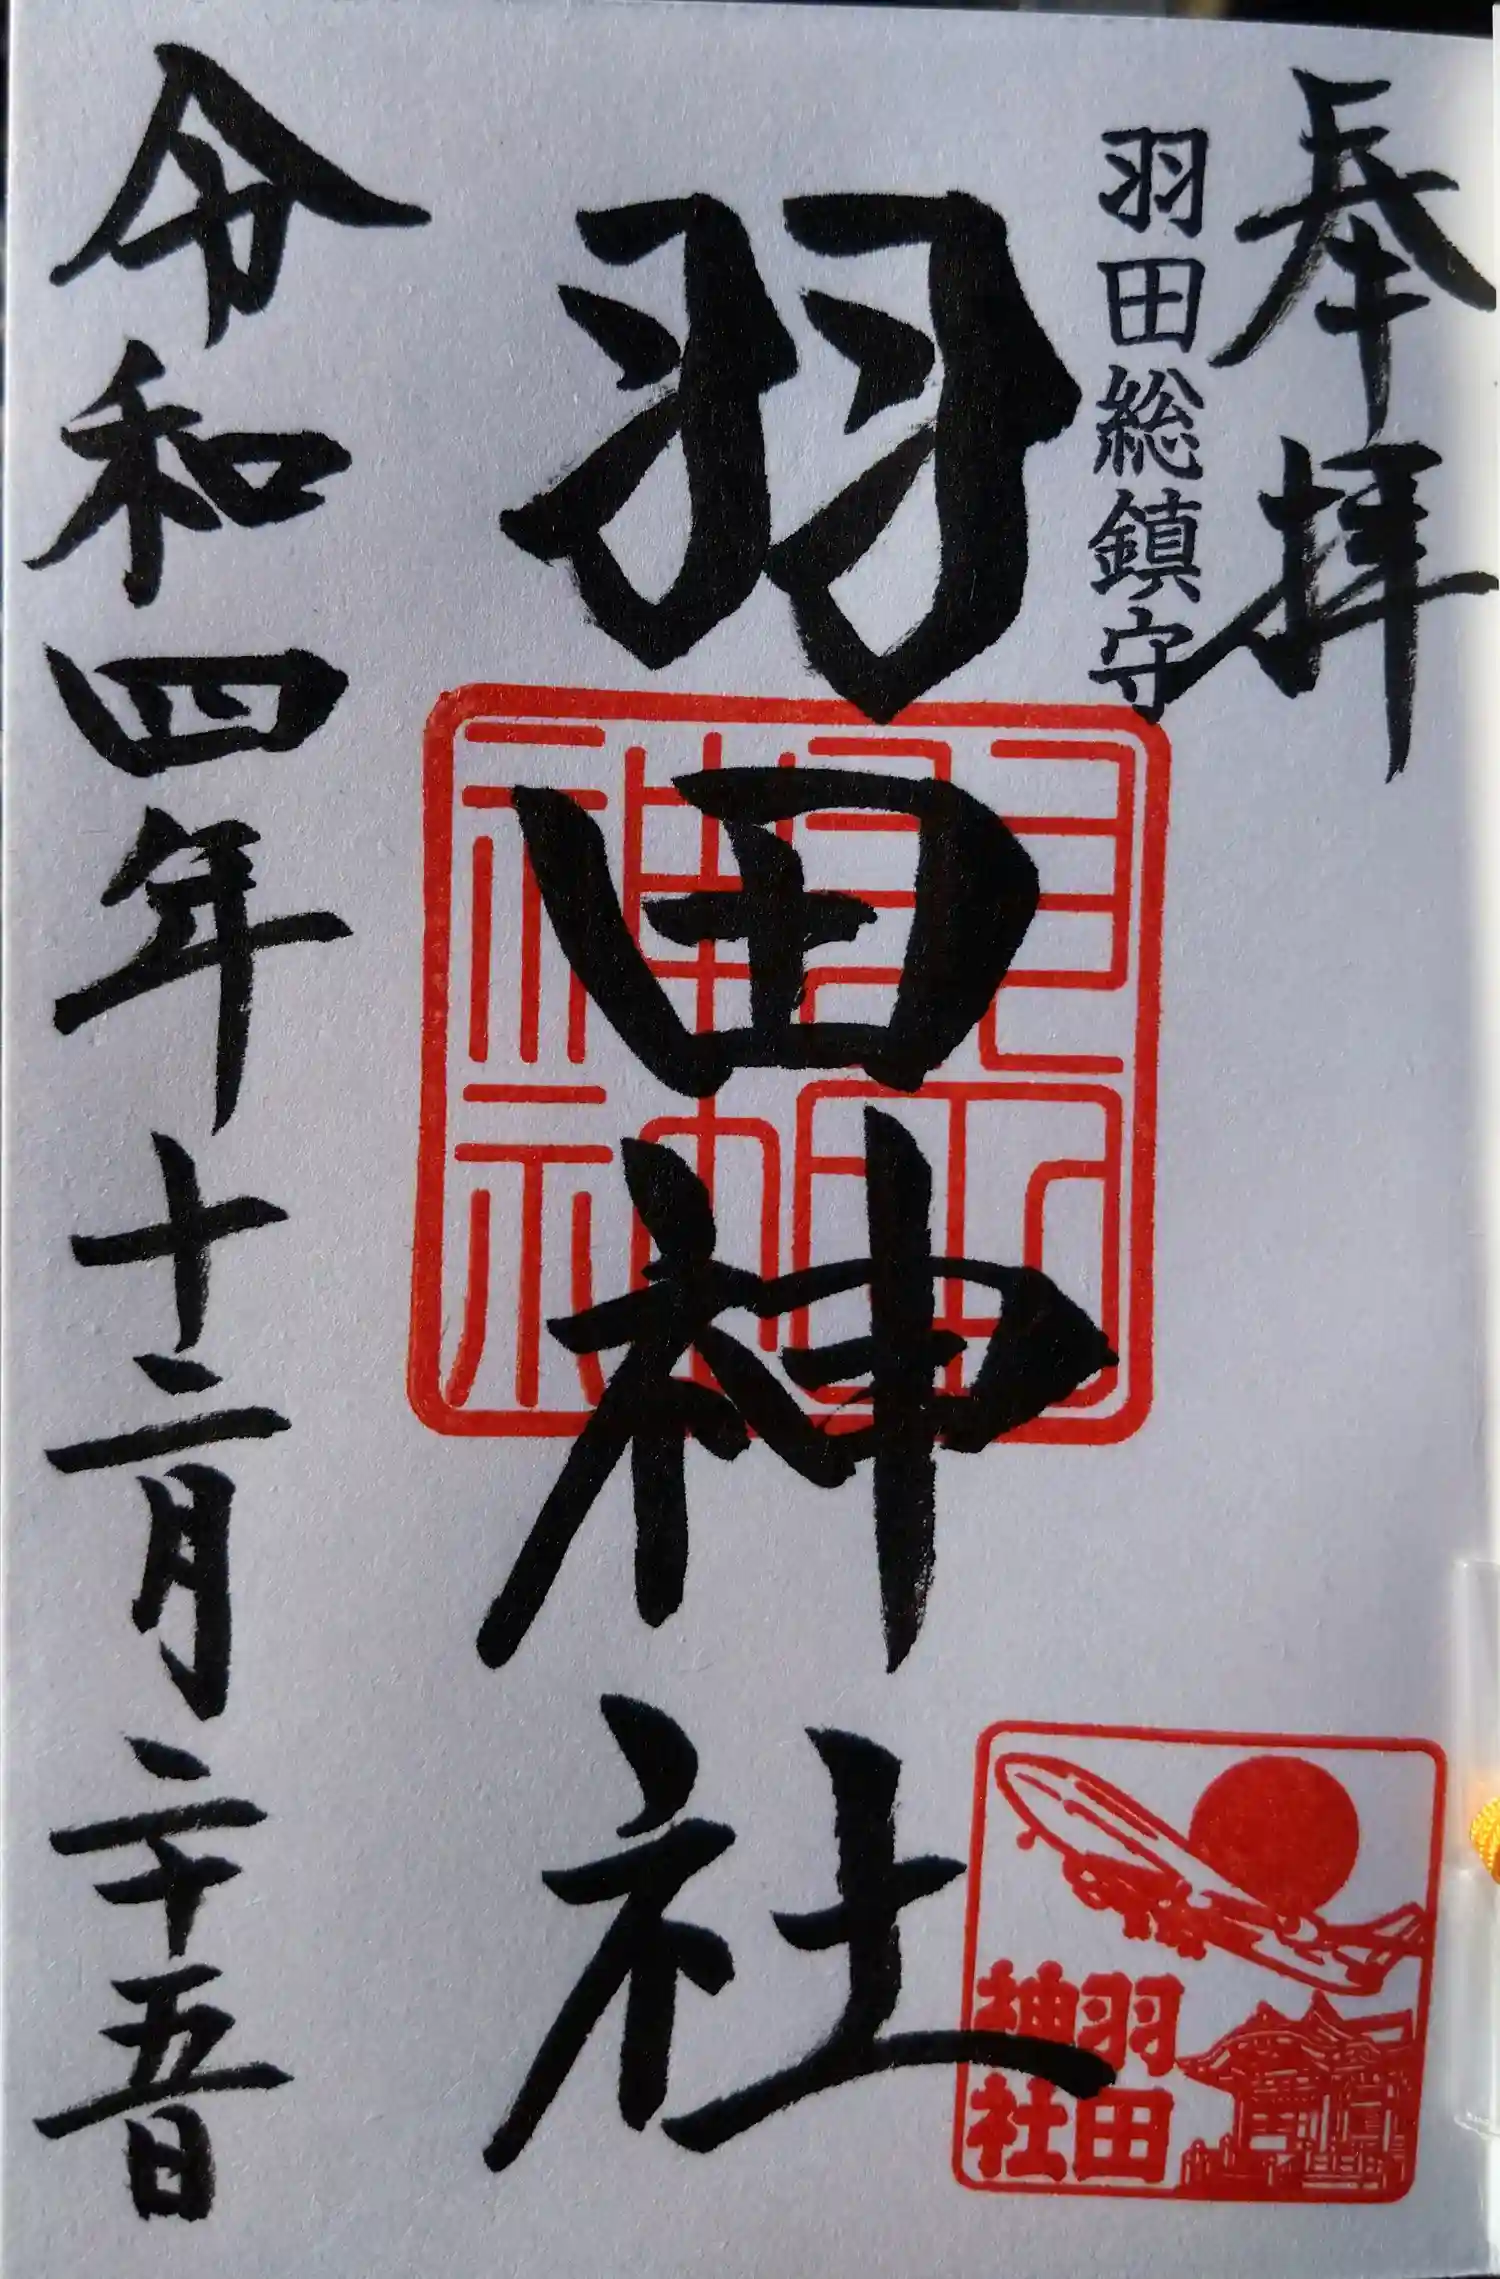 奉拝
羽田総鎮守
羽田神社
羽田
神社
羽田
神社
令和四年十二月二十五日